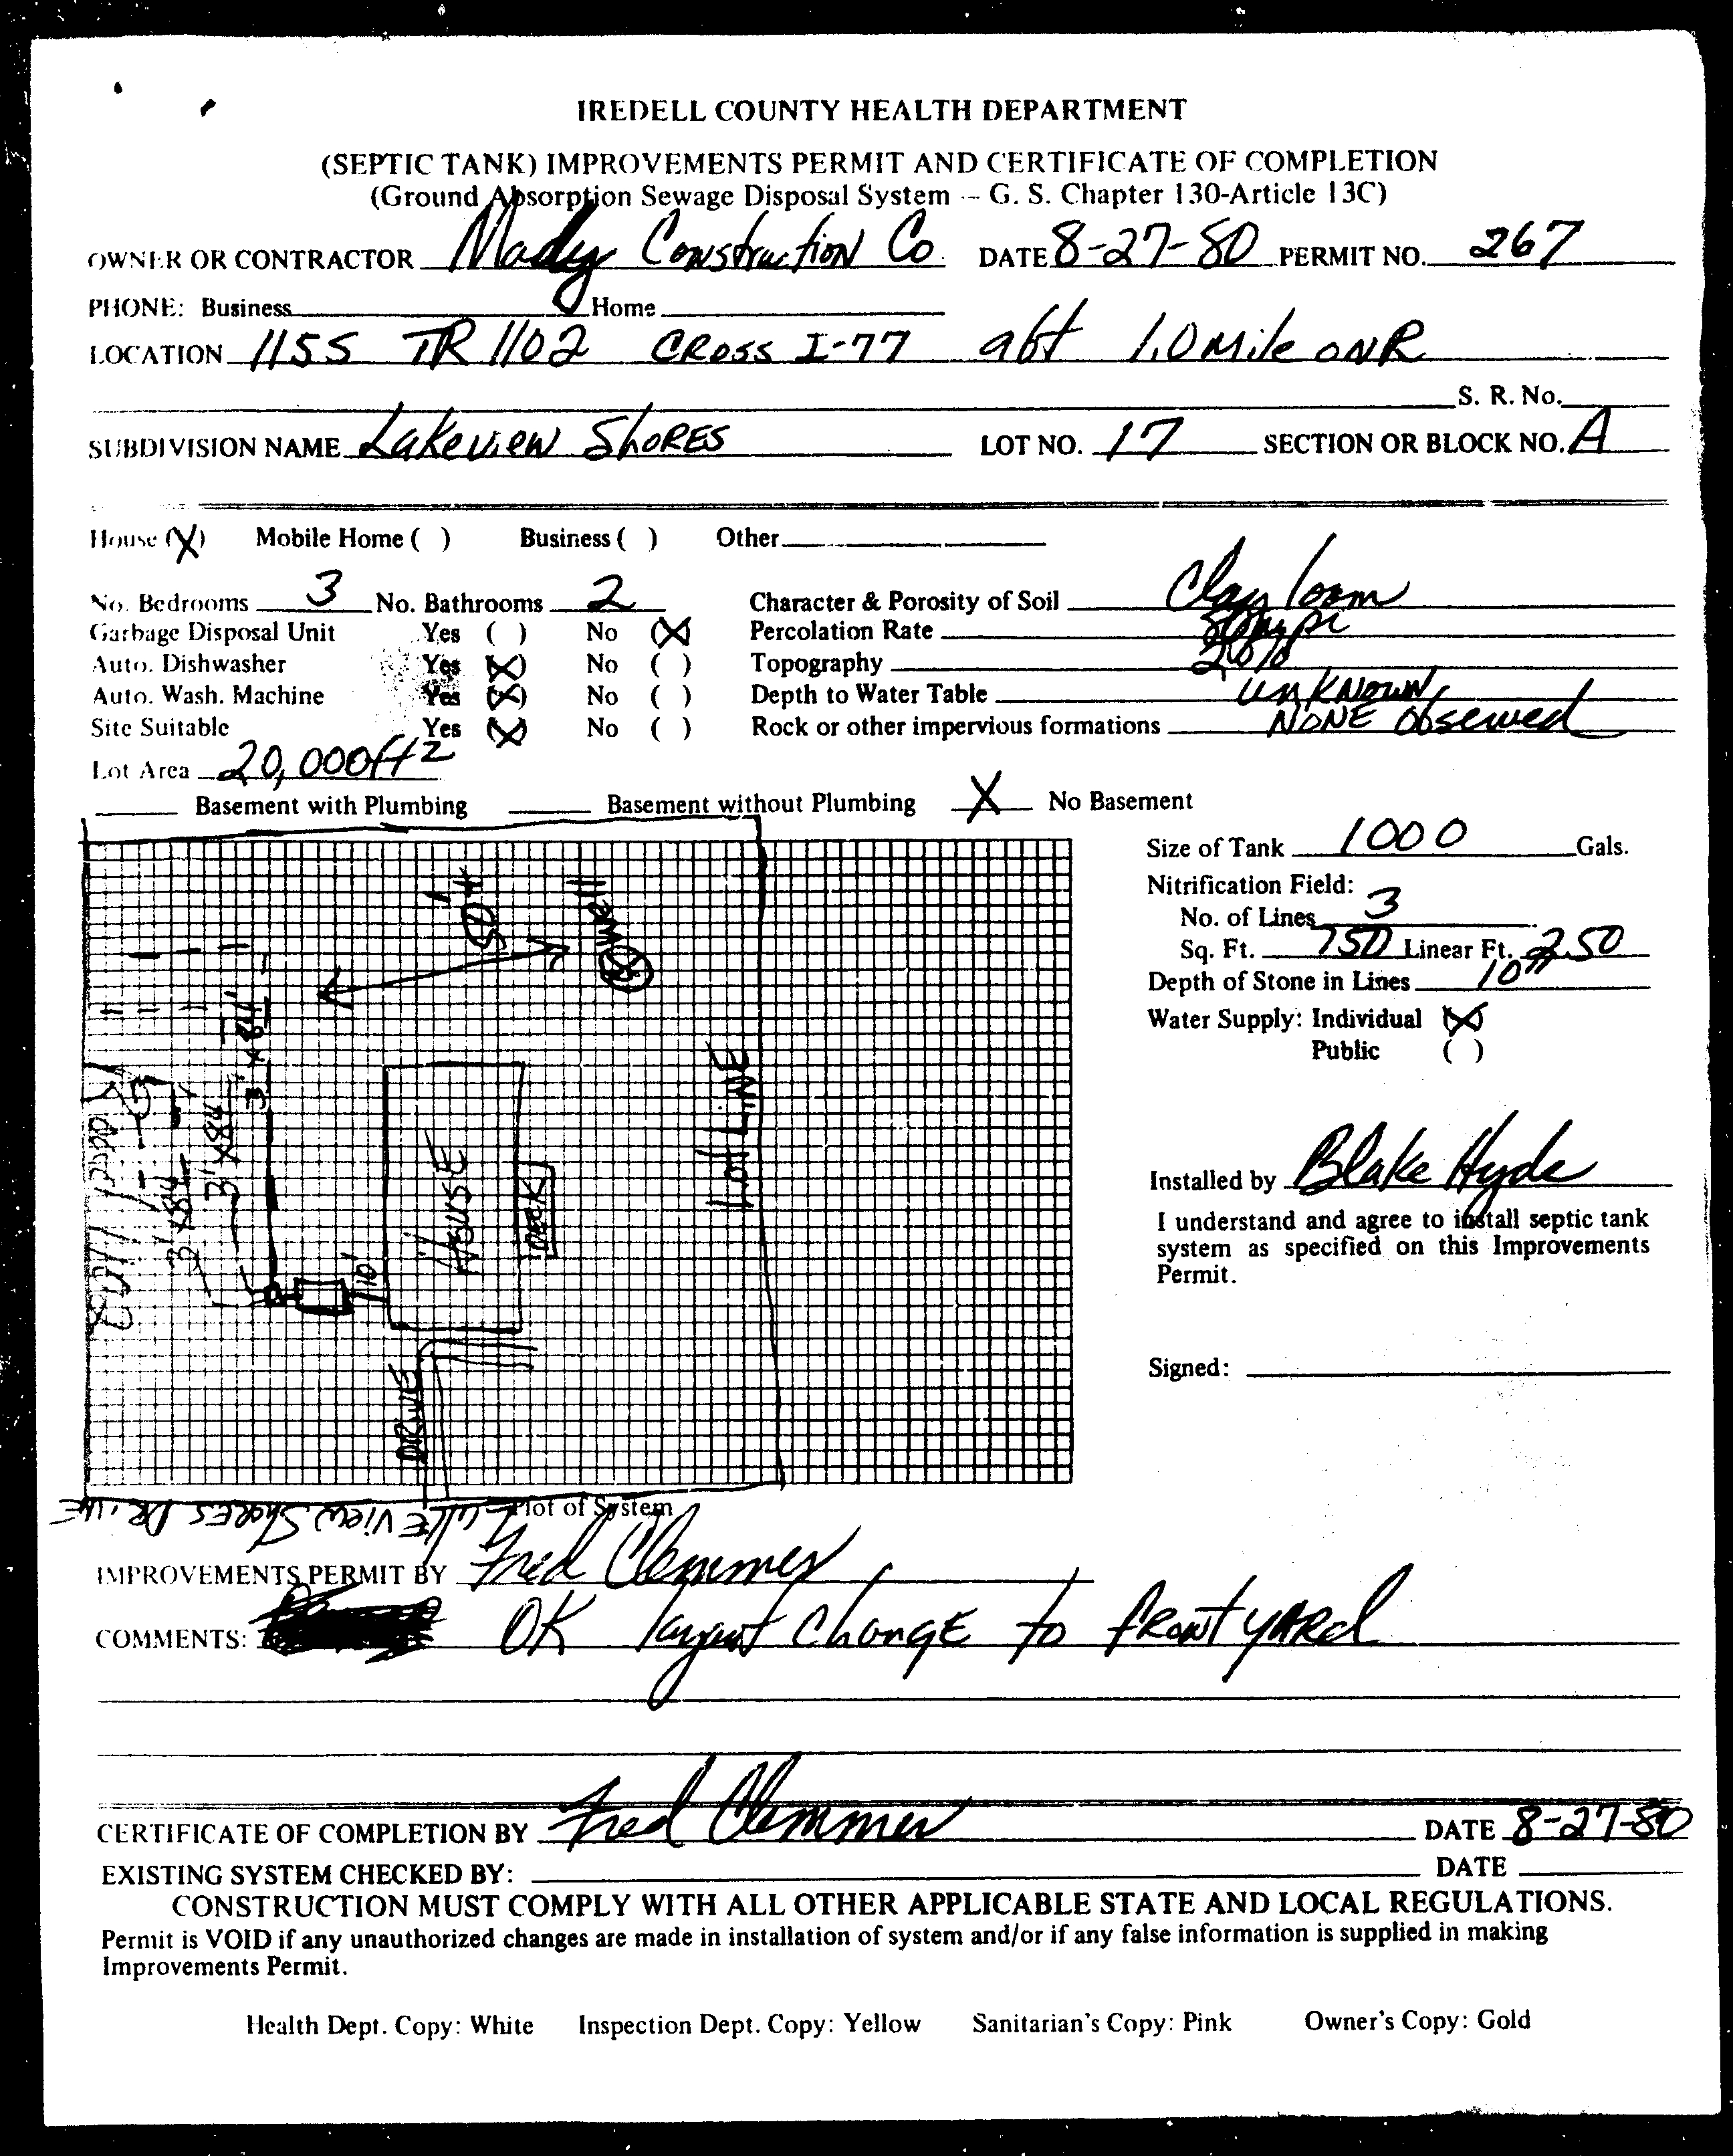 IREDELL COUNTY HEALTH DEPARTMENT
(SEPTIC TANK) IMPROVEMENTS PERMIT AND CERTIFICATE OF COMPLETION
(Ground Absorption Sewage Disposal System -- G. S. Chapter 130-Article 13C)
OWNER OR CONTRACTOR Mady Construction Co. DATE 8-27-80 PERMIT NO. 267
PHONE: Business Home
LOCATION 1155 TR 1102 CROSS I-77 abt 1.0 Mile ON R
S. R. No.
SUBDIVISION NAME Lakeview SHORES LOT NO. 17 SECTION OR BLOCK NO. A
House (X) Mobile Home ( ) Business ( ) Other
No. Bedrooms 3 No. Bathrooms 2 Character & Porosity of Soil Clay loam
Garbage Disposal Unit Yes ( ) No (X) Percolation Rate
Auto. Dishwasher Yes (X) No ( ) Topography
Auto. Wash. Machine Yes (X) No ( ) Depth to Water Table UNKNOWN
Site Suitable Yes (X) No ( ) Rock or other impervious formations NONE Observed
Lot Area 20,000ft2
Basement with Plumbing Basement without Plumbing X No Basement
Size of Tank 1000 Gals.
Nitrification Field:
No. of Lines 3
Sq. Ft. 750 Linear Ft. 250
Depth of Stone in Lines 10"
Water Supply: Individual (X)
Public ( )
Installed by Blake Hyde
I understand and agree to install septic tank
system as specified on this Improvements
Permit.
Signed:
3' x 84'
3' x 84'
3' x 84'
10'
HOUSE
DECK
DRIVE
LOT LINE
LAKE VIEW SHORES DRIVE
Plot of System
IMPROVEMENTS PERMIT BY Fred Clemmer
COMMENTS: OK layout change to front yard
CERTIFICATE OF COMPLETION BY Fred Clemmer DATE 8-27-80
EXISTING SYSTEM CHECKED BY: DATE
CONSTRUCTION MUST COMPLY WITH ALL OTHER APPLICABLE STATE AND LOCAL REGULATIONS.
Permit is VOID if any unauthorized changes are made in installation of system and/or if any false information is supplied in making
Improvements Permit.
Health Dept. Copy: White Inspection Dept. Copy: Yellow Sanitarian's Copy: Pink Owner's Copy: Gold